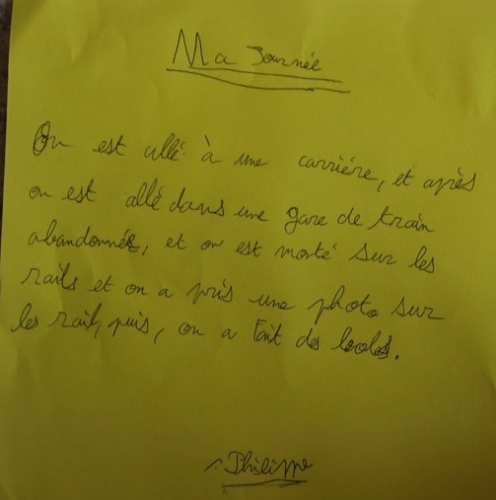 Ma Journée
On est allé à une carrière, et après
on est allé dans une gare de train
abandonnée, et on est monté sur les
rails et on a pris une photo sur
les rail, puis, on a fait des
Philippe